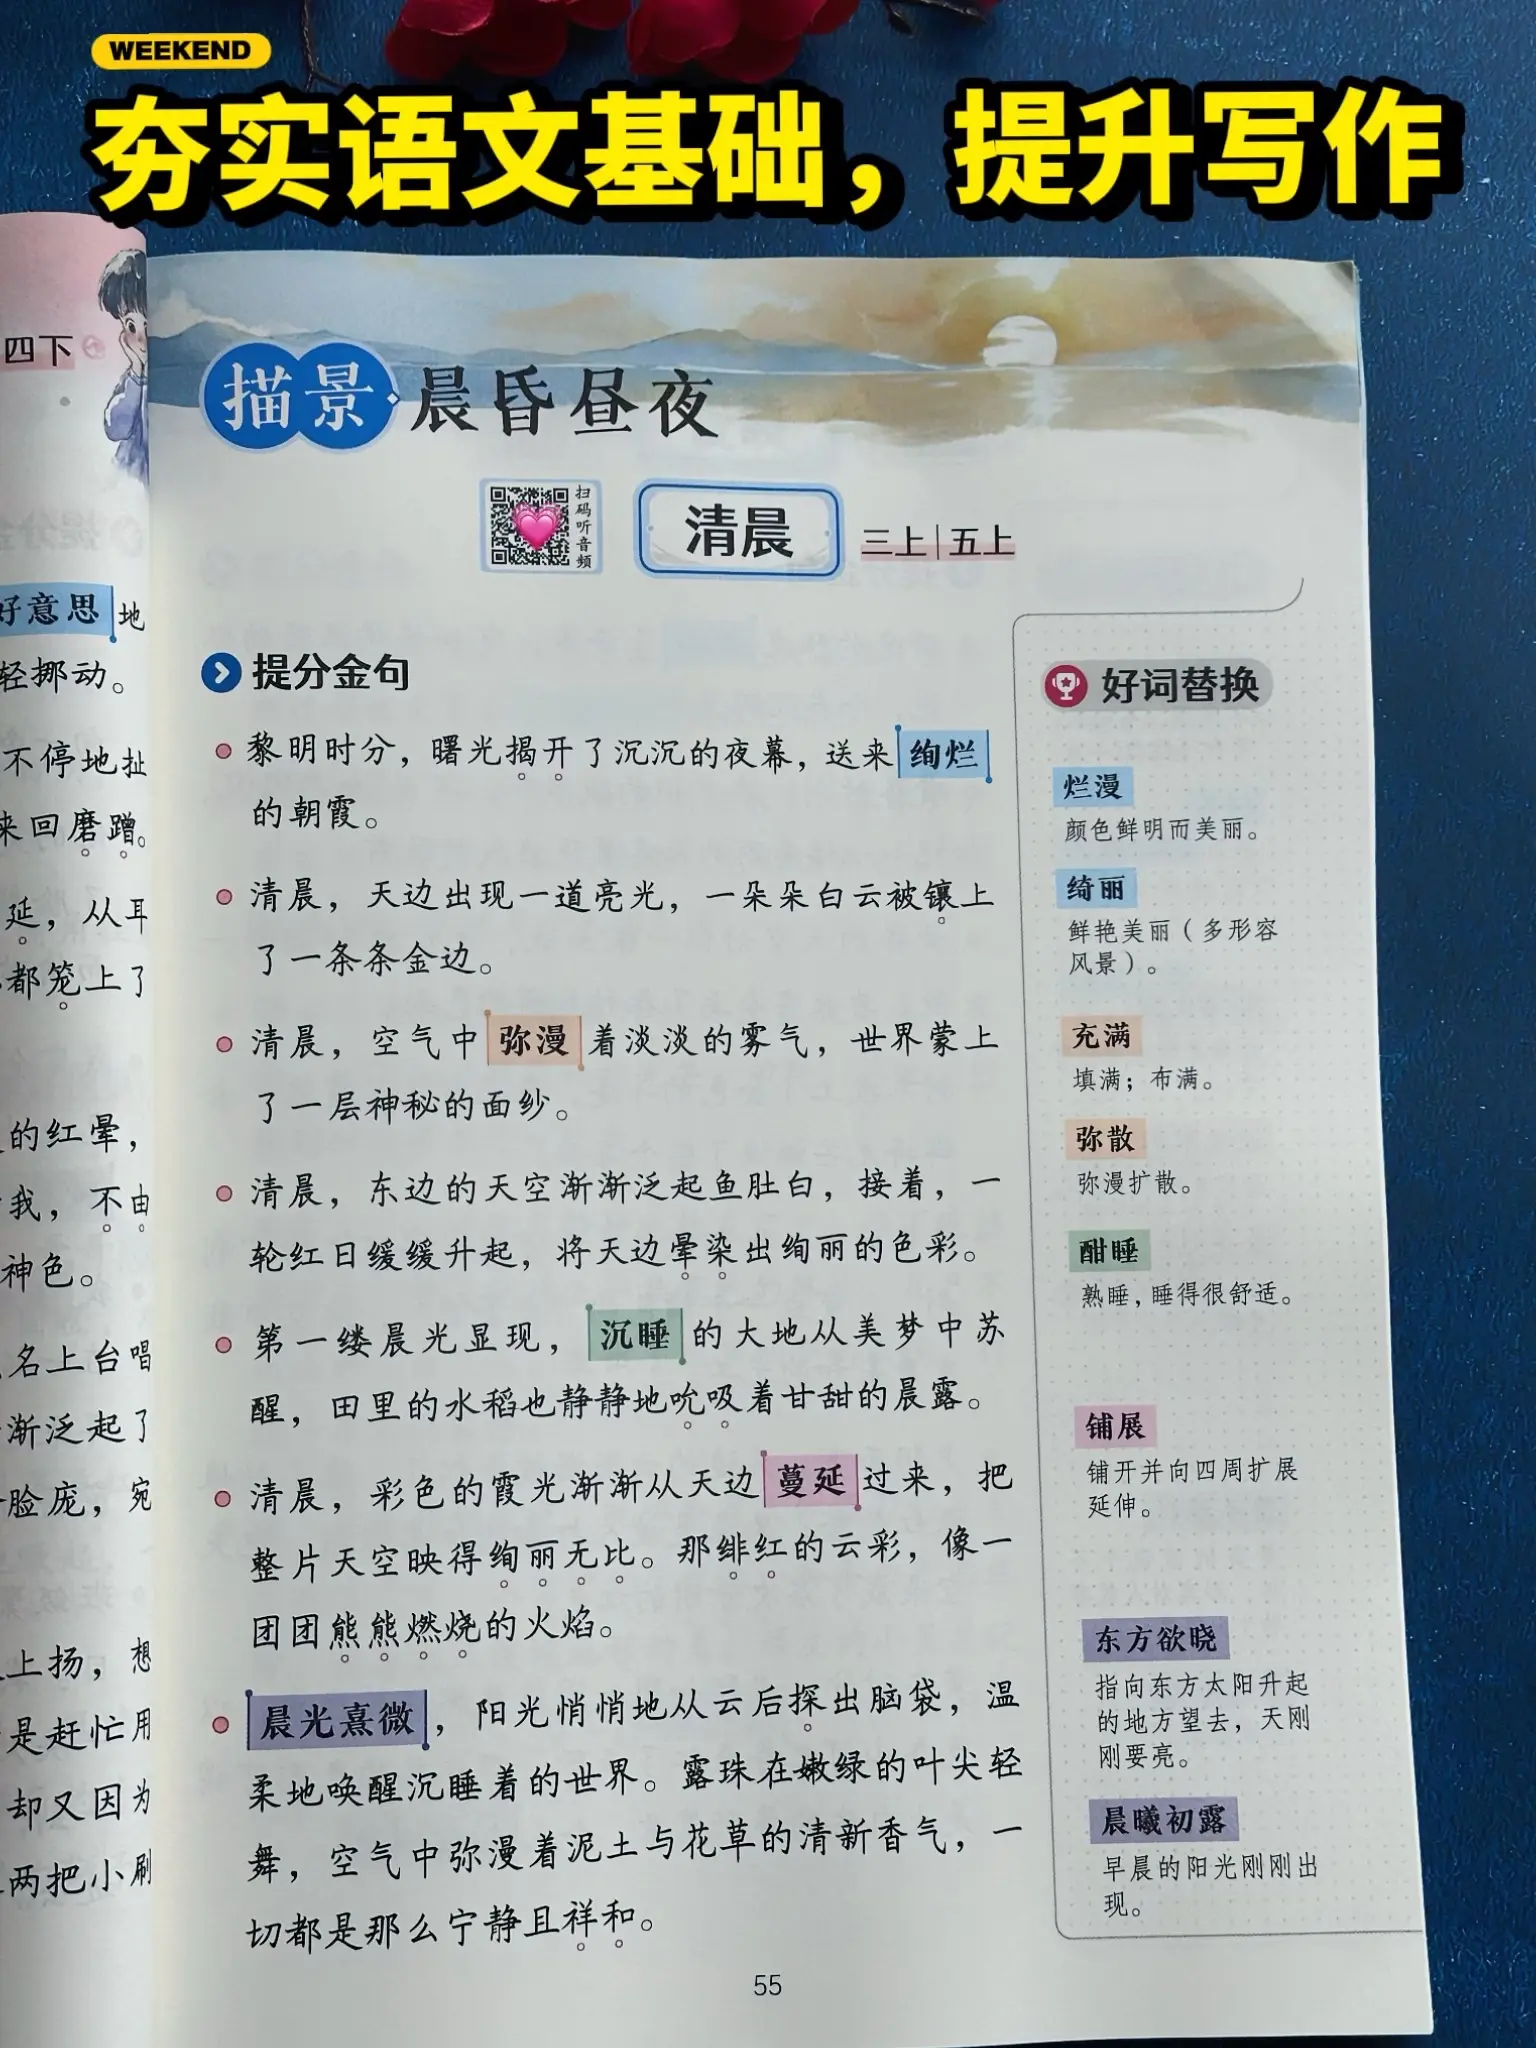 WEEKEND
夯实语文基础，提升写作
四下
好意思地
轻挪动。
不停地扯
来回磨蹭。
延，从耳
都笼上了
的红晕，
我，不由
神色。
名上台唱
渐泛起了
脸庞，宛
上扬，想
是赶忙用
却又因为
两把小刷
描景·晨昏昼夜
扫码听音频
清晨
三上|五上
提分金句
黎明时分，曙光揭开了沉沉的夜幕，送来绚烂
的朝霞。
清晨，天边出现一道亮光，一朵朵白云被镶上
了一条条金边。
清晨，空气中弥漫着淡淡的雾气，世界蒙上
了一层神秘的面纱。
清晨，东边的天空渐渐泛起鱼肚白，接着，一
轮红日缓缓升起，将天边晕染出绚丽的色彩。
第一缕晨光显现，沉睡的大地从美梦中苏
醒，田里的水稻也静静地吮吸着甘甜的晨露。
清晨，彩色的霞光渐渐从天边蔓延过来，把
整片天空映得绚丽无比。那绯红的云彩，像一
团团熊熊燃烧的火焰。
晨光熹微，阳光悄悄地从云后探出脑袋，温
柔地唤醒沉睡着的世界。露珠在嫩绿的叶尖轻
舞，空气中弥漫着泥土与花草的清新香气，一
切都是那么宁静且祥和。
好词替换
烂漫
颜色鲜明而美丽。
绮丽
鲜艳美丽（多形容
风景）。
充满
填满；布满。
弥散
弥漫扩散。
酣睡
熟睡，睡得很舒适。
铺展
铺开并向四周扩展
延伸。
东方欲晓
指向东方太阳升起
的地方望去，天刚
刚要亮。
晨曦初露
早晨的阳光刚刚出
现。
55